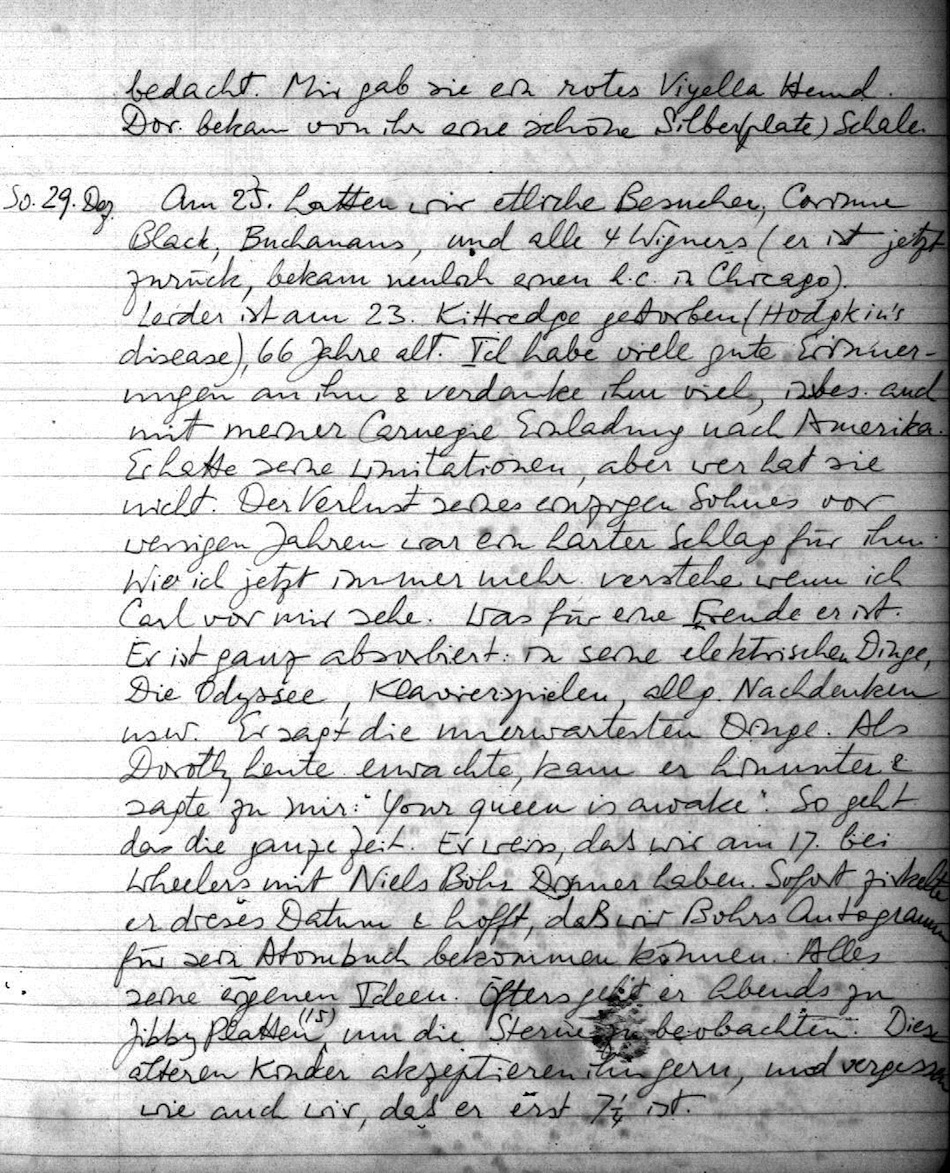 bedacht. Mir gab sie ein rotes Viyella Hemd.
Dor. bekam von ihr eine schöne Silber(plate) Schale.
So. 29. Dez. Am 25. hatten wir etliche Besucher, Corinne
Black, Buchanans, und alle 4 Wigners (er ist jetzt
zurück, bekam neulich einen h.c. in Chicago).
Leider ist am 23. Kittredge gestorben (Hodgkin's
disease), 66 Jahre alt. Ich habe viele gute Erinner-
ungen an ihn & verdanke ihm viel, insbes. auch
mit meiner Carnegie Einladung nach Amerika.
Er hatte seine Limitationen, aber wer hat sie
nicht. Der Verlust seines einzigen Sohnes vor
wenigen Jahren war ein harter Schlag für ihn.
Wie ich jetzt immer mehr verstehe wenn ich
Carl vor mir sehe. Was für eine Freude er ist.
Er ist ganz absorbiert in seine elektrischen Dinge,
Die Odyssee, Klavierspielen, allg. Nachdenken
usw. Er sagt die unerwartesten Dinge. Als
Dorothy heute erwachte, kam er hinunter &
sagte zu mir: "Your queen is awake". So geht
das die ganze Zeit. Er weiss, daß wir am 17. bei
Wheelers mit Niels Bohr Dinner haben. Sofort zirkelte
er dieses Datum & hofft, daß wir Bohrs Autogramm
für sein Atombuch bekommen können. Alles
seine eigenen Ideen. Öfters geht er Abends zu
Jibby Platten (15), um die Sterne zu beobachten. Diese
älteren Kinder akzeptieren ihn gern, und vergessen
wie auch wir, daß er erst 7¼ ist.